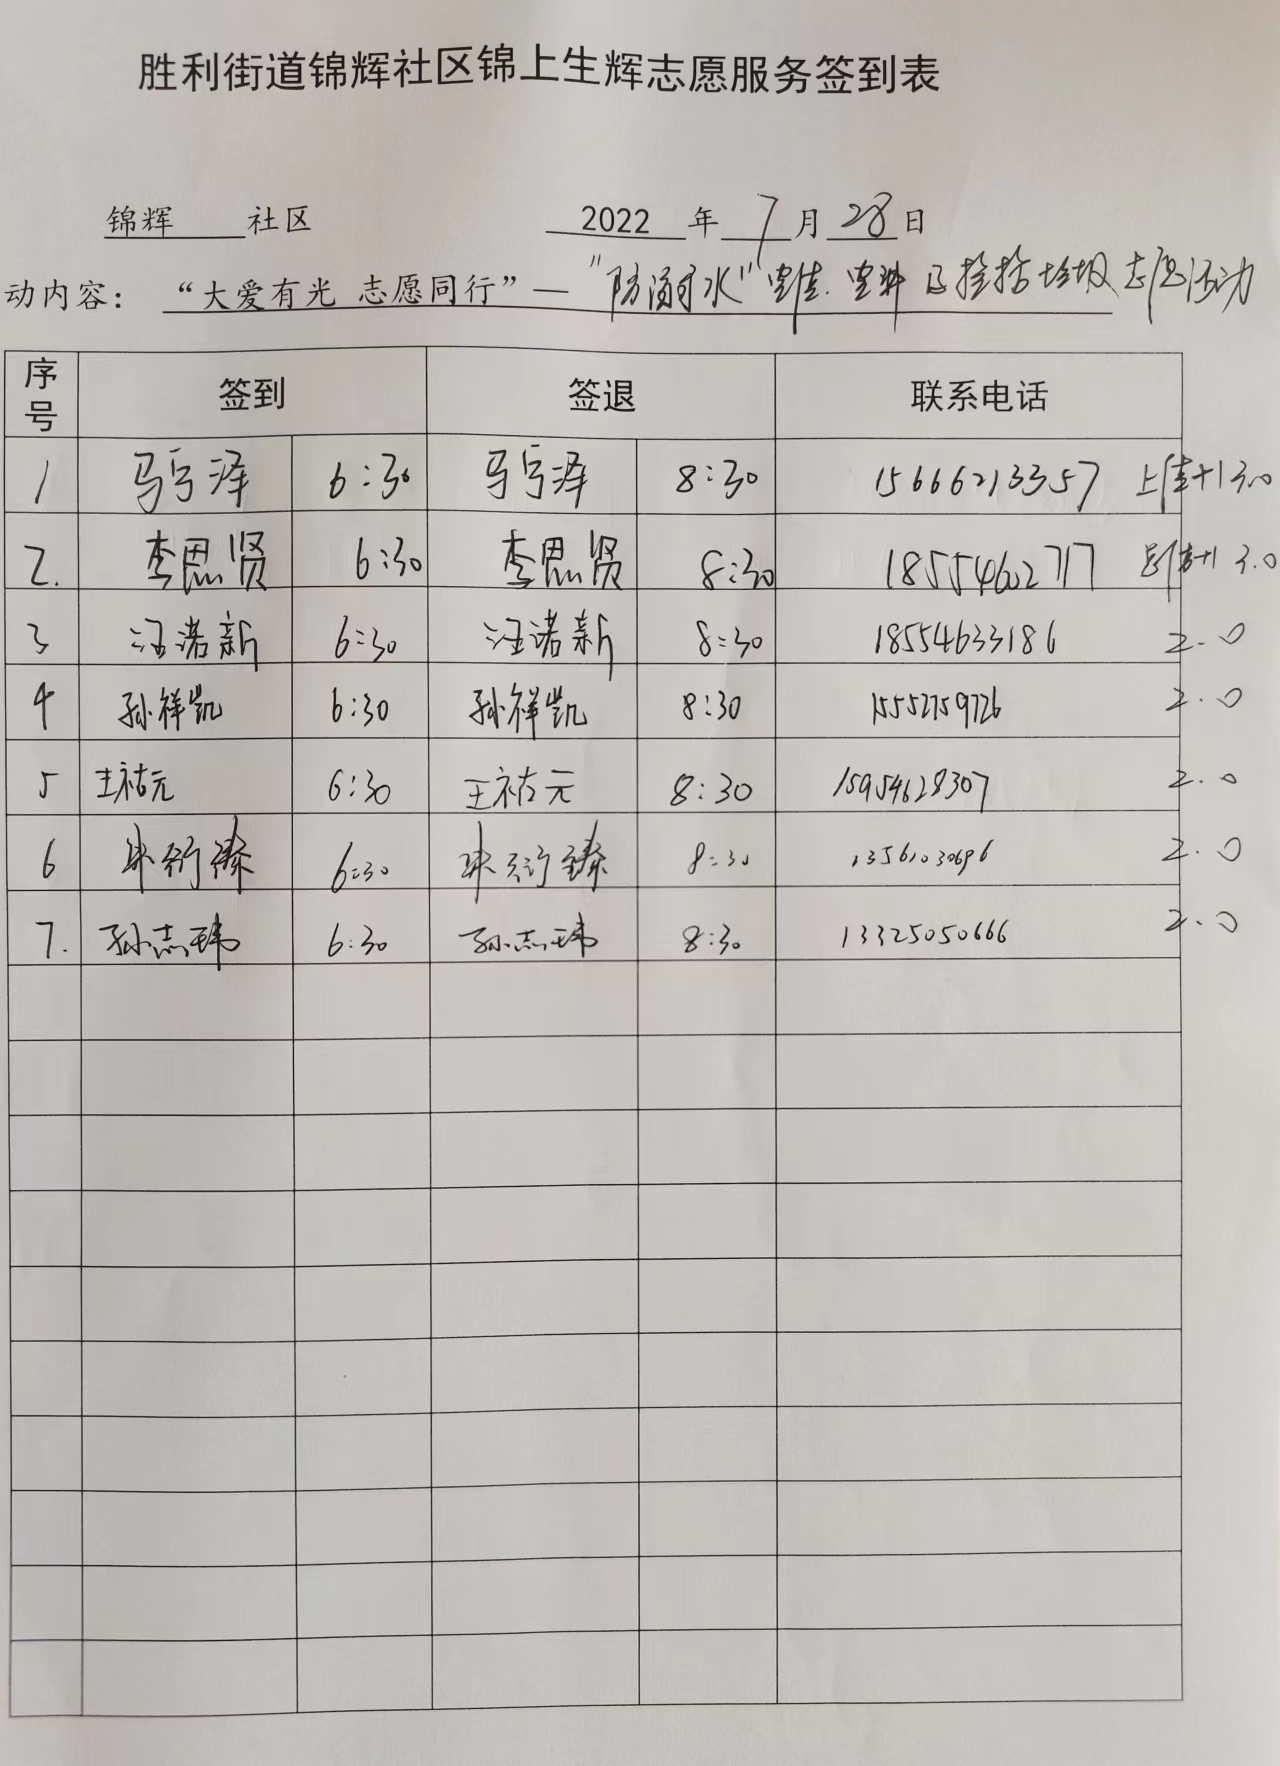 胜利街道锦辉社区锦上生辉志愿服务签到表
锦辉 社区 2022 年 7 月 28 日
动内容：“大爱有光 志愿同行”—“防溺水”宣传 及捡拾垃圾志愿活动
序号 签到 签退 联系电话
1 马亏泽 6:30 马亏泽 8:30 15666213357 3.0
2. 李思贤 6:30 李思贤 8:30 18554602717 3.0
3 汪诺新 6:30 汪诺新 8:30 18554633186 2.0
4 孙祥凯 6:30 孙祥凯 8:30 15552759726 2.0
5 王祜元 6:30 王祜元 8:30 15954628307 2.0
6 6:30 8:30 13561030696 2.0
7. 孙志玮 6:30 孙志玮 8:30 13325050666 2.0